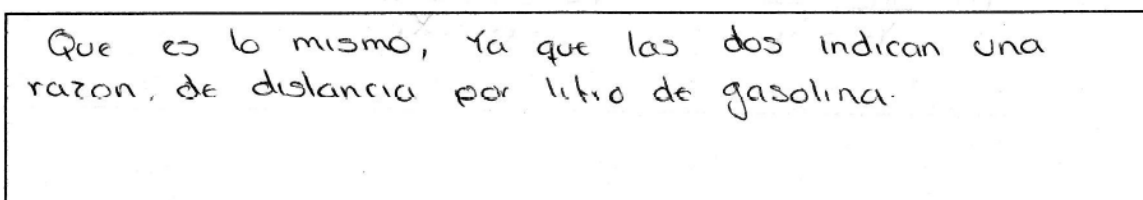 Que es lo mismo, Ya que las dos indican una
razon. de distancia por litro de gasolina.